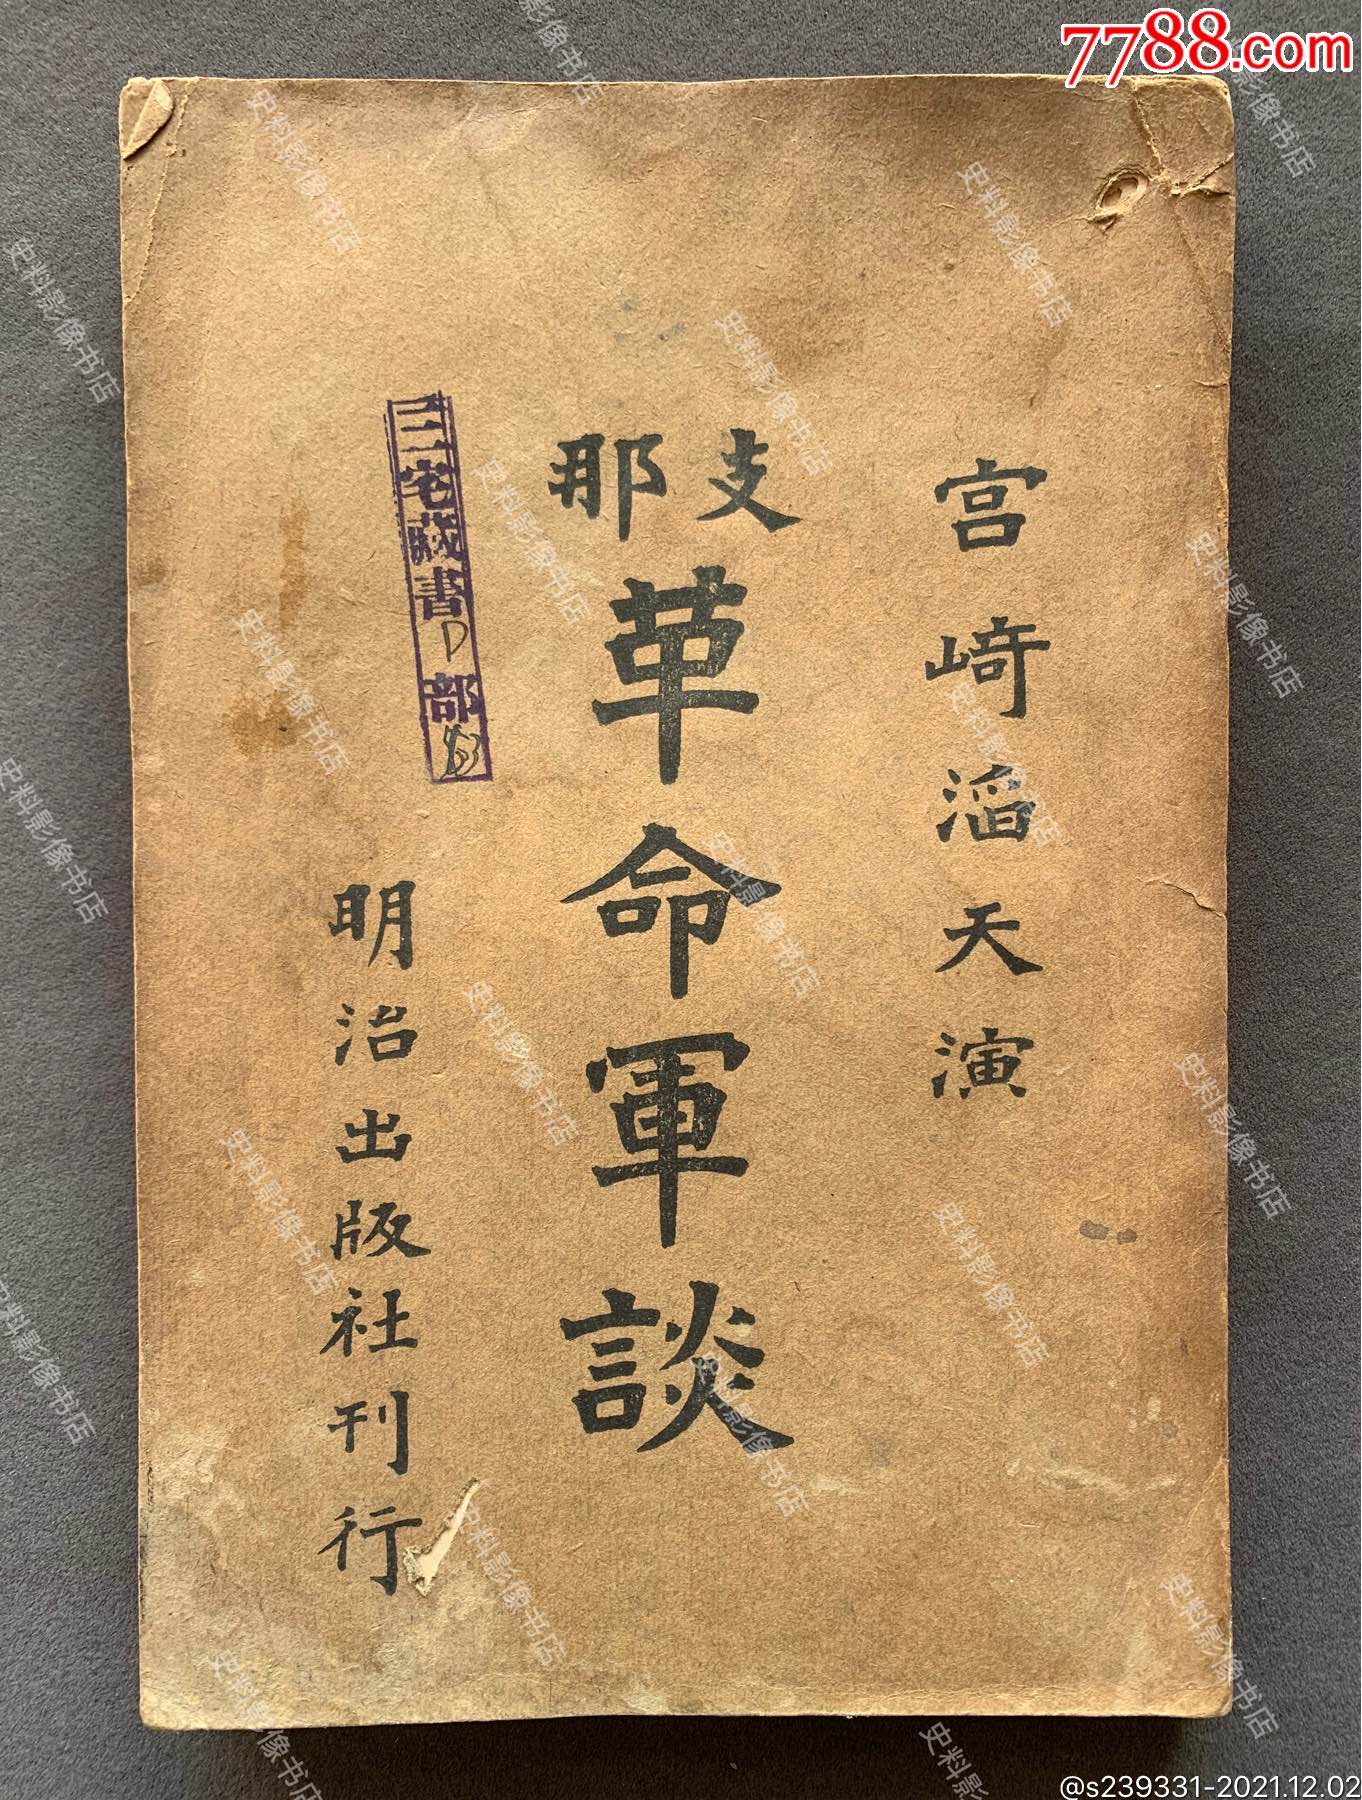 7788.com
宮崎滔天演
支那
革命軍談
三宅藏書D部
明治出版社刊行
史料影像书店
@s239331-2021.12.02